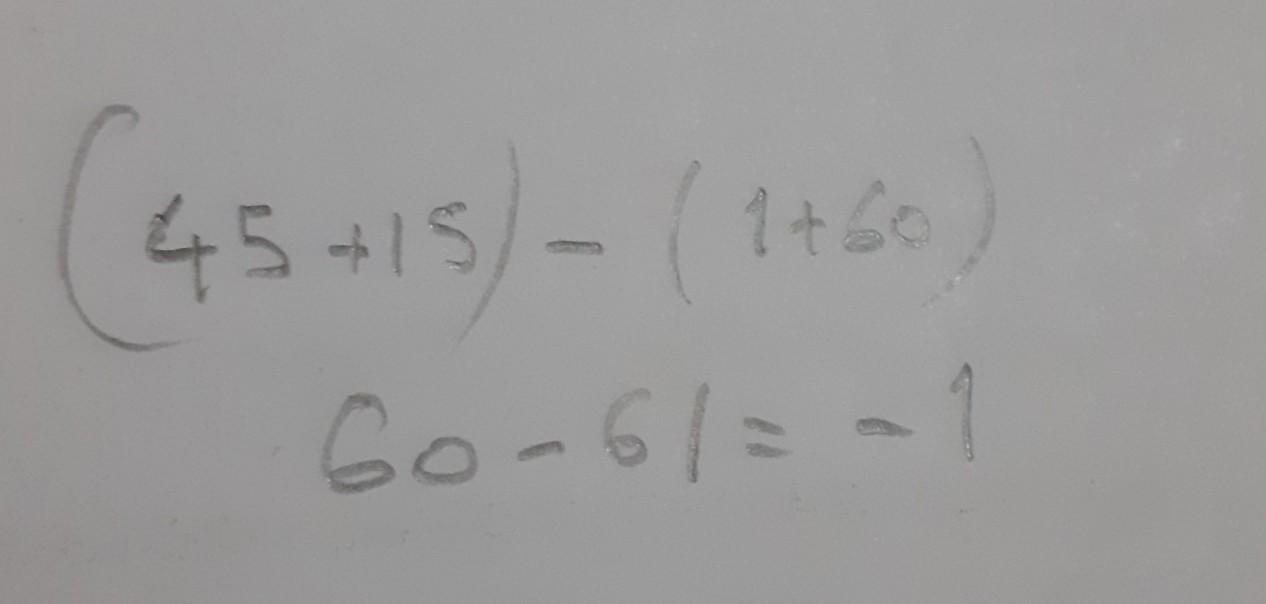 (45+15)-(1+60)
60-61=-1